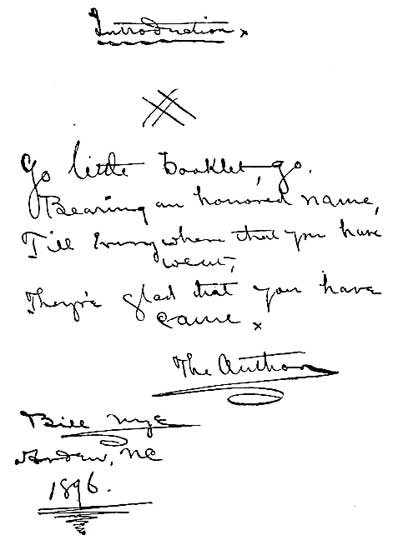 Introduction.
Go little booklet, go.
Bearing an honored name,
Till Everywhere that you have
went,
They're glad that you have
came.
The Author
Bill Nye
Arden, NC
1896.